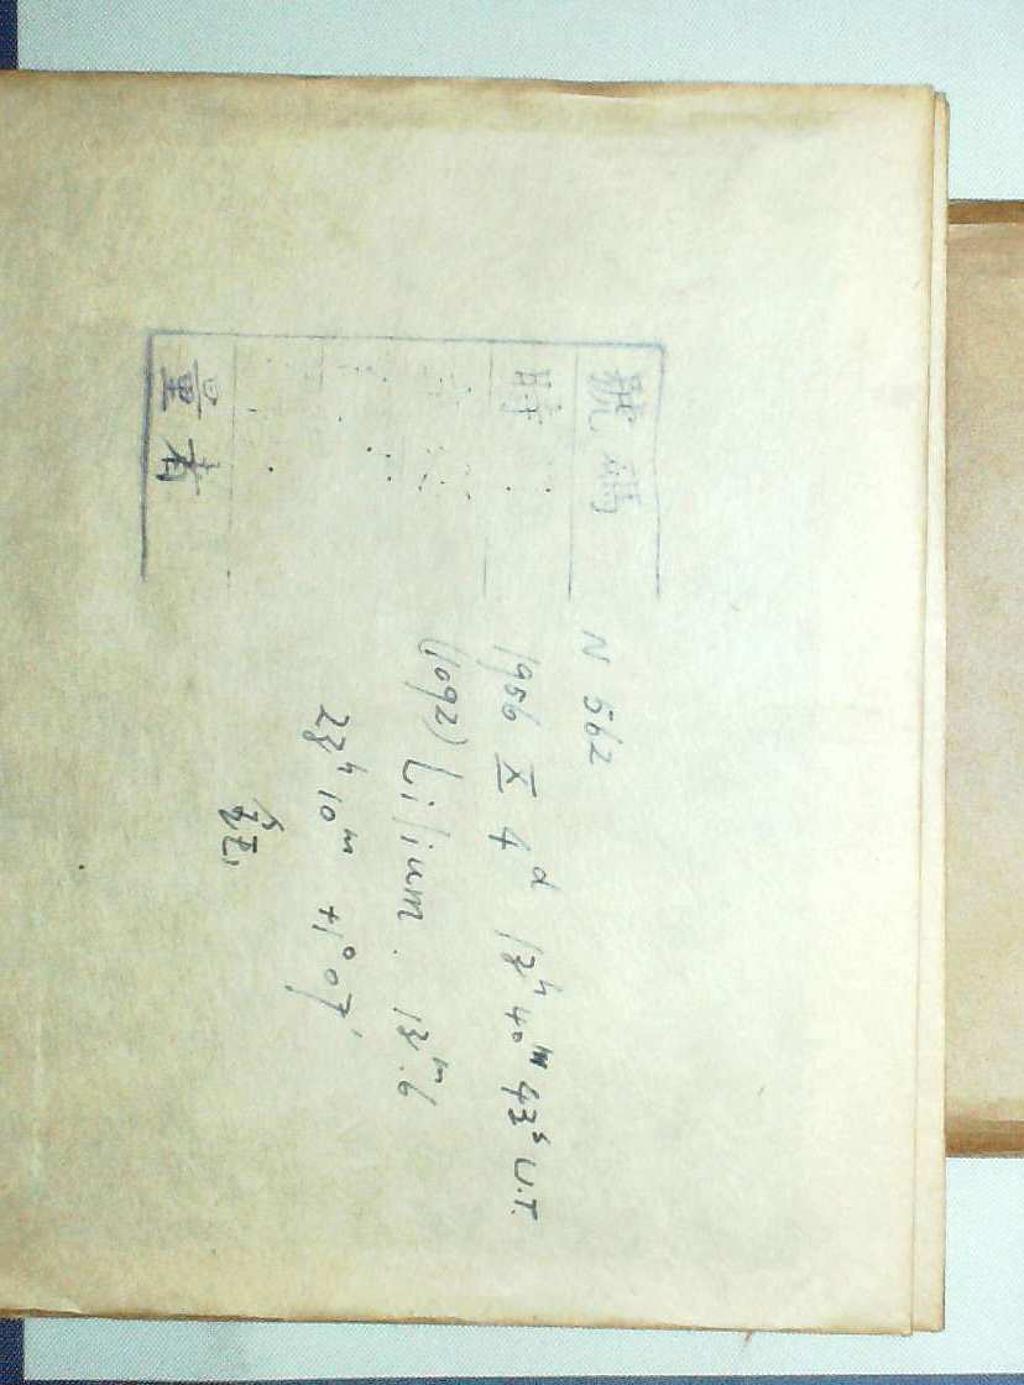 號碼 N 562
時 1956 X 4ᵈ 13ʰ 40ᵐ 43ˢ U.T.
(1092) Lilium. 13ᵐ.6
23ʰ 10ᵐ +1° 07′
量者